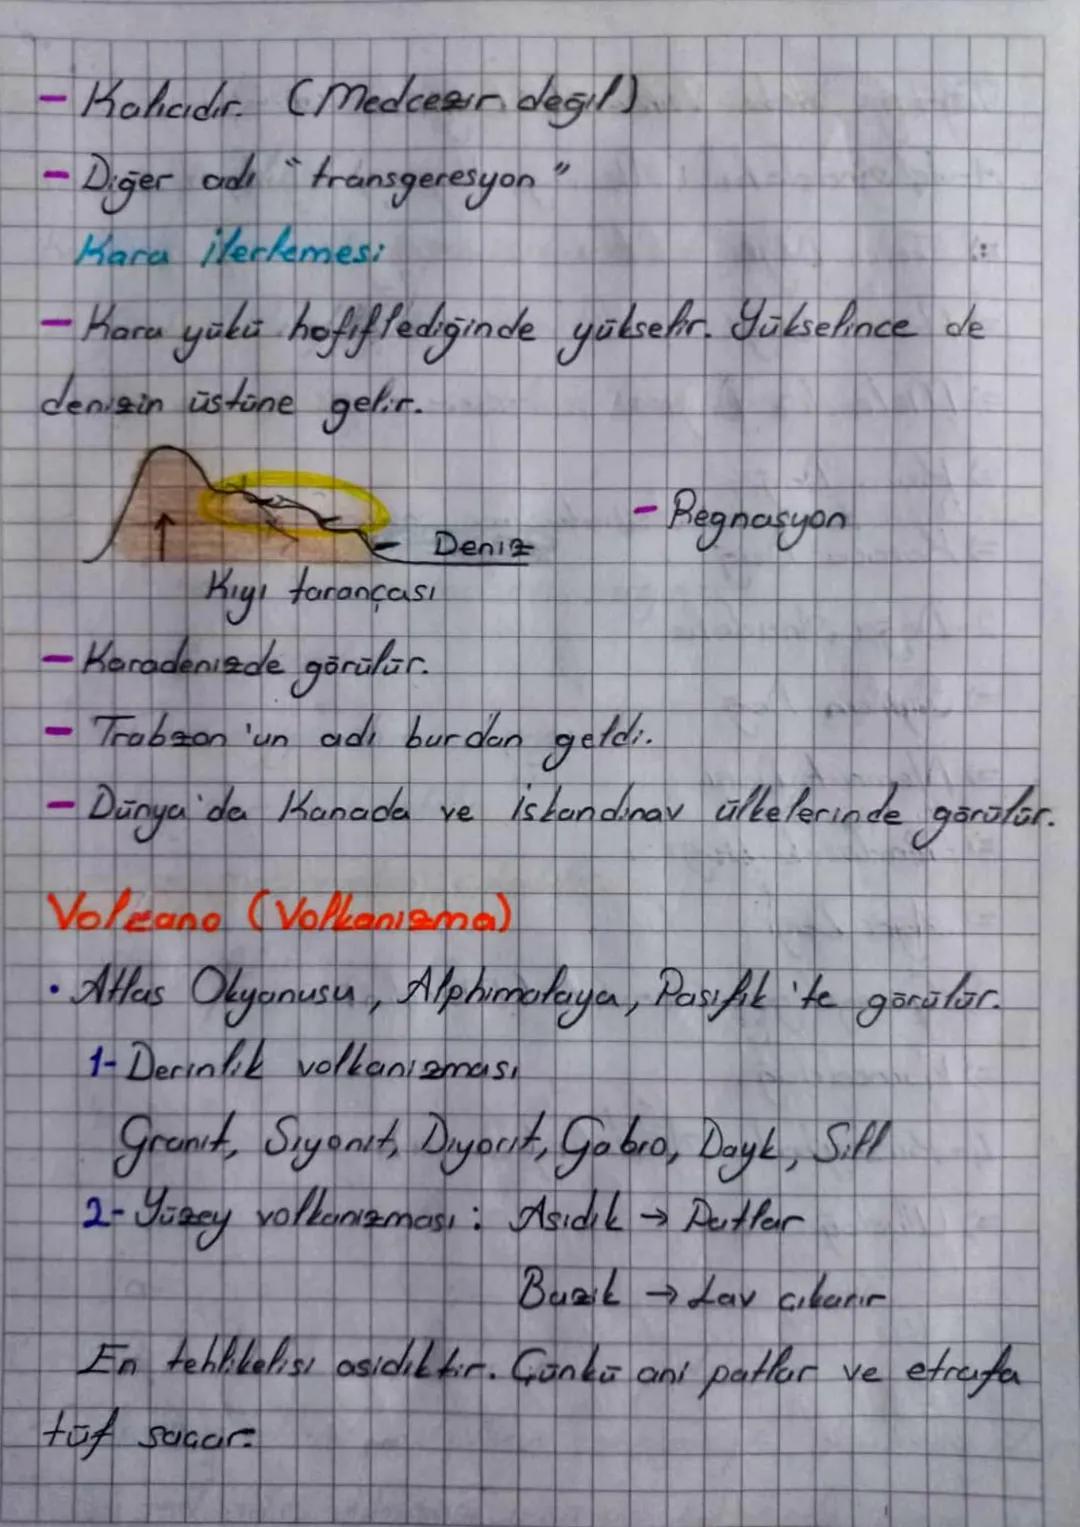 - Kalıcıdır. (Medcezir değil)
- Diğer adı "transgeresyon"
Kara ilerlemesi
- Kara yükü hafiflediğinde yükselir. Yükselince de
denizin üstüne gelir.
- Regnasyon
Deniz
Kıyı tarançası
- Karadenizde görülür.
- Trabzon'un adı burdan geldi.
- Dünya'da Kanada ve İskandinav ülkelerinde görülür.
Volcano (Volkanizma)
• Atlas Okyanusu, Alphimalaya, Pasifik'te görülür.
1- Derinlik volkanizması
Granit, Siyenit, Diyorit, Gabro, Dayk, Sill
2- Yüzey volkanizması: Asidik → Patlar
Bazik → Lav çıkarır
En tehlikelisi asidiktir. Çünkü ani patlar ve etrafa
tüf saçar.